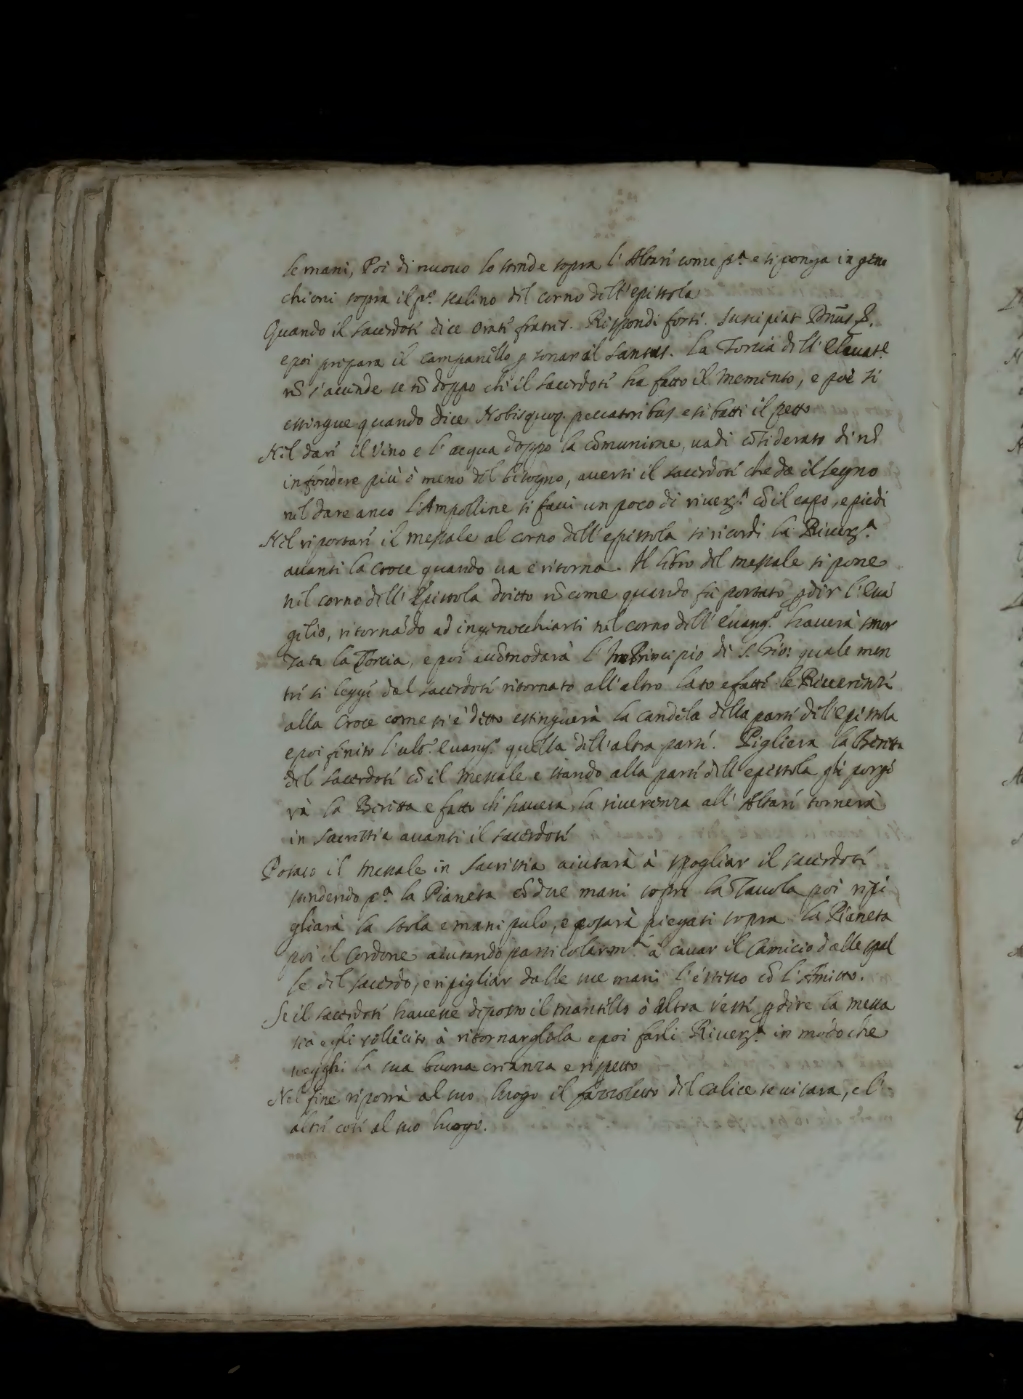 le mani, Poi di nuovo lo stende sopra l'Altare come p.ª e si ponga in geno
chioni sopra il p.º scalino del corno dell'epistola
Quando il sacerdote dice orate fratres. Rispondi forte. Suscipiat Dñus &.
e poi prepara il campanello p sonar al Santus. La Torcia dell'
nõ s'acende se nõ doppo che il sacerdote ha fatto il memento, e poi si
estingue quando dice Nobisquoq. peccatoribus e si batte il petto
Nel dare il vino e l'acqua doppo la cõmunione, vadi cõsiderato di nõ
infondere più ò meno del bisogno, averti il sacerdote che da il segno
nel dare anco l'Ampolline si facci un poco di riverz.ª cõ il capo, e piedi
Nel riportare il messale al corno dell'epistola si ricordi la Riverz.ª
avanti la Croce quando va e ritorna. Il libro del messale si pone
nel corno dell'Epistola dritto nõ come quando fu portato p dir l'Evã
gelio, ritornãdo ad ingenocchiarsi nel corno dell'evang.º haverà smor
zata la Torcia, e poi accõmodarà l' Principio di S. Gion quale men
tre si legge dal sacerdote ritornato all'altro lato e fatte le Riverenze
alla Croce come si è detto estinguerà la candela della parte dell'epistola
e poi finito l'ult.º evang.º quella dell'altra parte. Pigliera la Beretta
del sacerdote cõ il messale e stando alla parte dell'epistola gli porge
rà la Beretta e fatto ch'havera la riverenza all'Altare tornerà
in sacristia avanti il sacerdote
Posato il messale in Sacristia aiutarà à spogliar il sacerdote
stendendo p.ª la Pianeta cõ due mani sopra la Tavola poi ripi
gliarà la stola e manipulo, e posarà piegati sopra la Pianeta
poi il Cordone aiutando particolarm.te à cavar il Camicio dalle spal
le del sacerdo, e ripigliar dalle sue mani l'istesso cõ l'Amitto.
Se il sacerdote havesse deposto il mantello ò altra veste p dire la messa
sia egli sollecito à ritornarglela e poi farli Riverz.ª in modo che
vegghi la sua buona crianza e rispetto
Nel fine riporrà al suo luogo il fazzoletto del calice se vi sara, e l'
altre cose al suo luogo.